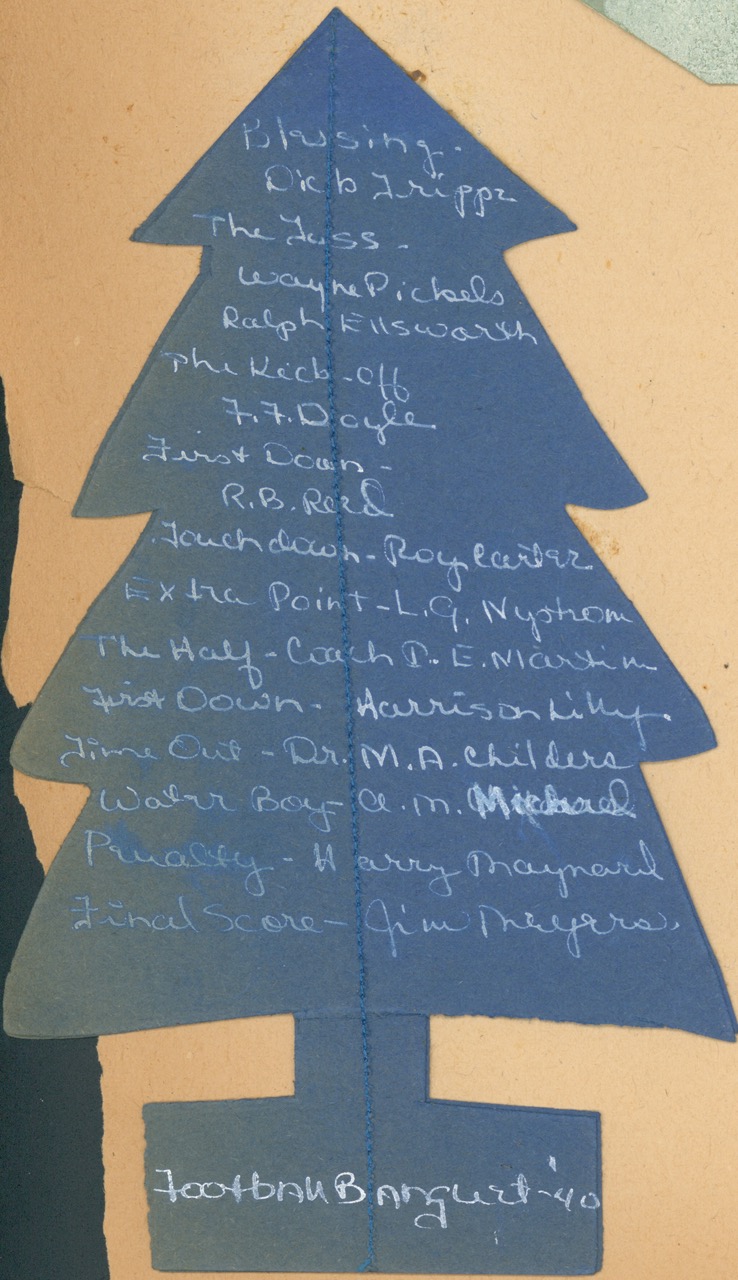 Blessing -
Dick Trippe
The Toss -
Wayne Pickels
Ralph Ellsworth
The Kick-off
F.F. Doyle
First Down -
R.B. Reid
Touchdown - Roy Carter
Extra Point - L.G. Nystrom
The Half - Coach P. E. Martin
First Down - Harrison Lilly.
Time Out - Dr. M.A. Childers
Water Boy - A. M. Michael
Penalty - Harry Maynard
Final Score - Jim Meyers.
Football Banquet - '40